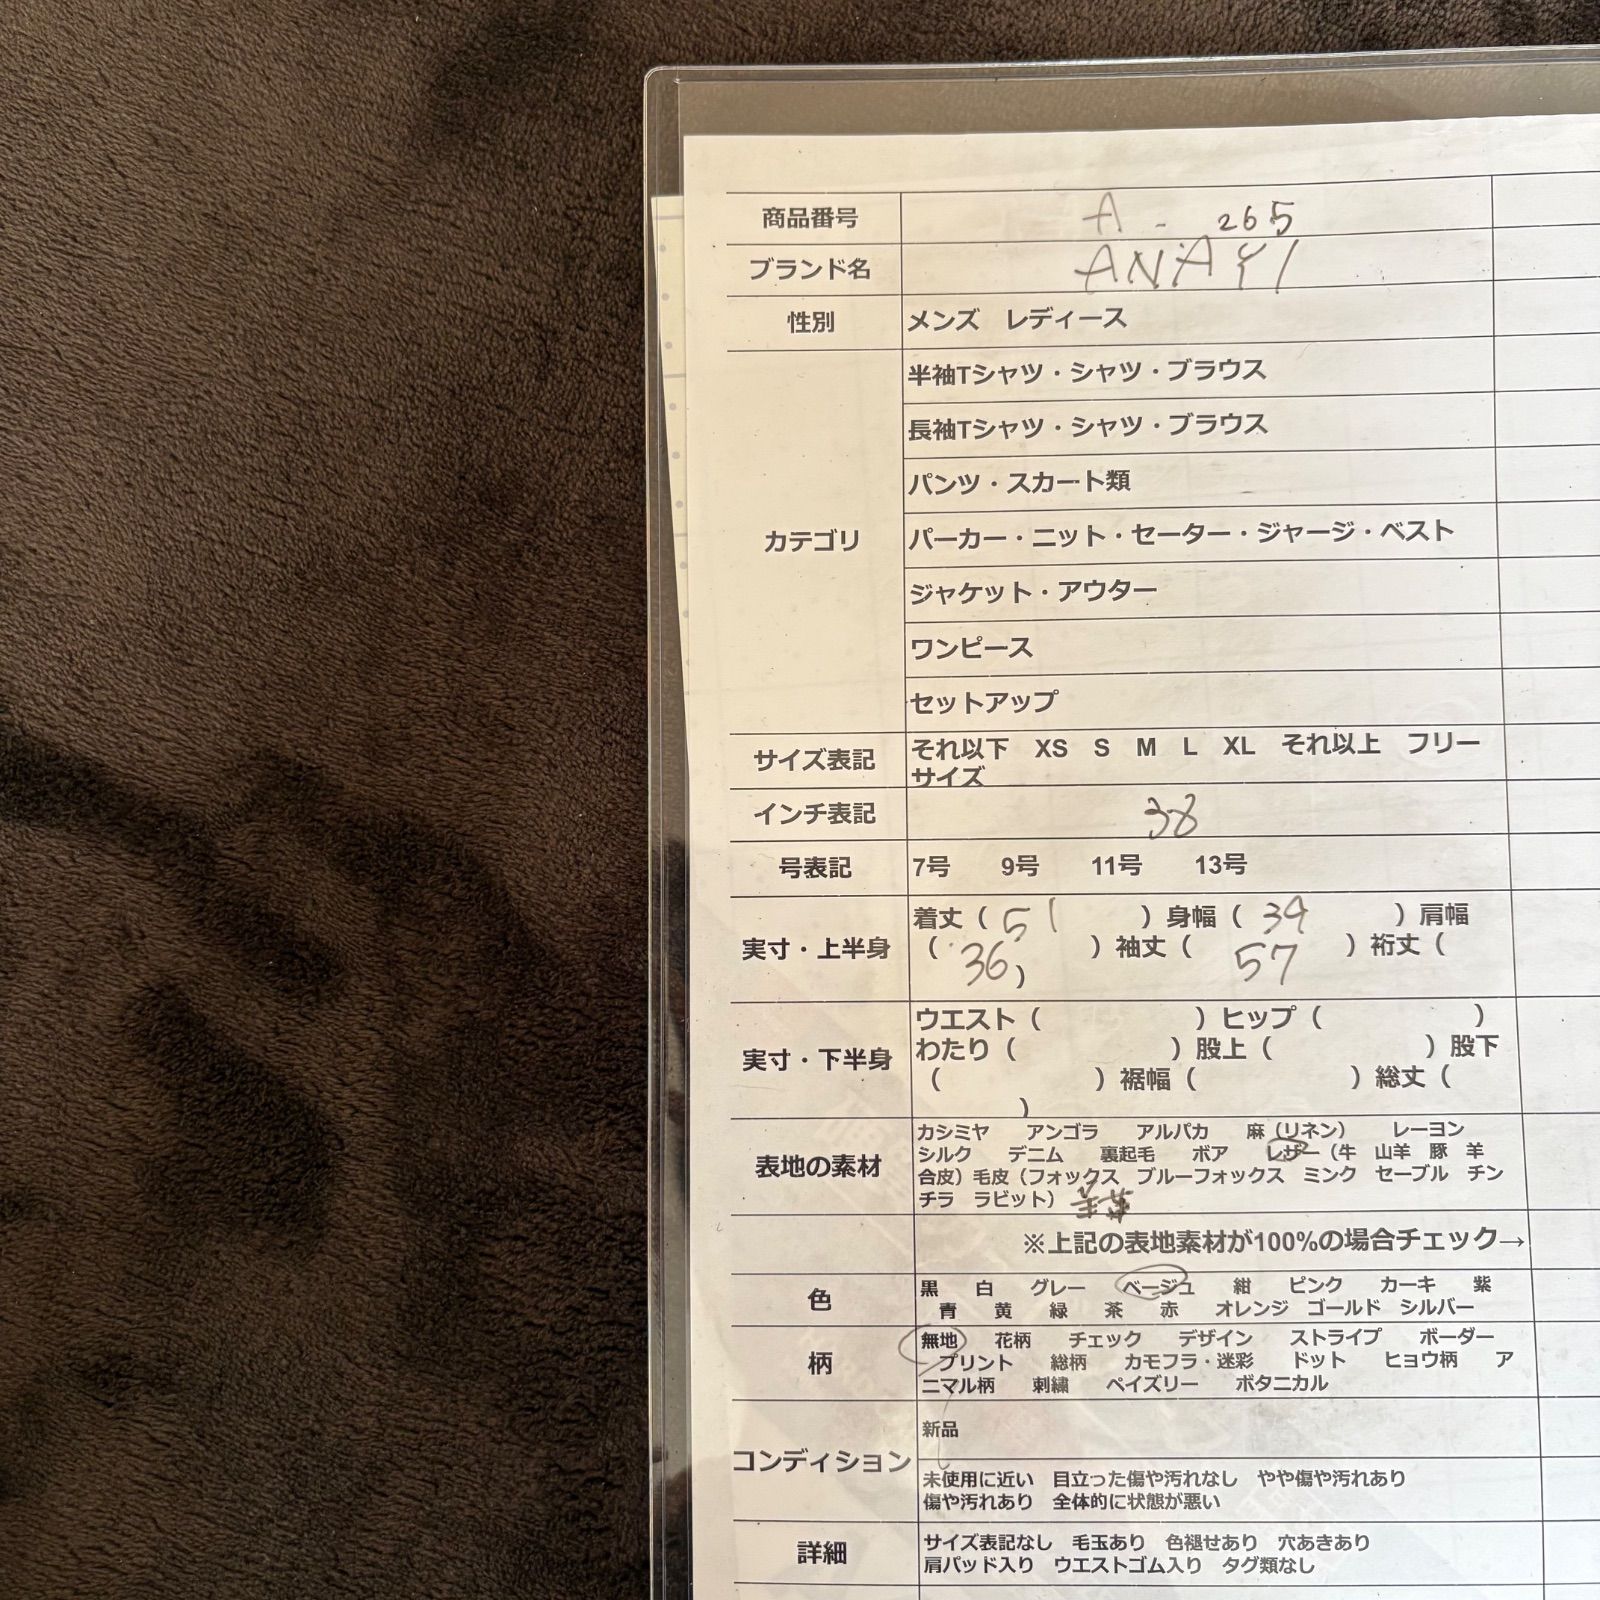 商品番号 A - 265
ブランド名 ANAYI
性別 メンズ レディース
カテゴリ
半袖Tシャツ・シャツ・ブラウス
長袖Tシャツ・シャツ・ブラウス
パンツ・スカート類
パーカー・ニット・セーター・ジャージ・ベスト
ジャケット・アウター
ワンピース
セットアップ
サイズ表記 それ以下 XS S M L XL それ以上 フリー
サイズ
インチ表記 38
号表記 7号 9号 11号 13号
実寸・上半身
着丈（ 51 ）身幅（ 39 ）肩幅
（ 36 ）袖丈（ 57 ）裄丈（
）
実寸・下半身
ウエスト（ ）ヒップ（ ）
わたり（ ）股上（ ）股下
（ ）裾幅（ ）総丈（
）
表地の素材
カシミヤ アンゴラ アルパカ 麻（リネン） レーヨン
シルク デニム 裏起毛 ボア レザー（牛 山羊 豚 羊
合皮）毛皮（フォックス ブルーフォックス ミンク セーブル チン
チラ ラビット） 羊革
※上記の表地素材が100%の場合チェック→
色
黒 白 グレー ベージュ 紺 ピンク カーキ 紫
青 黄 緑 茶 赤 オレンジ ゴールド シルバー
柄
無地 花柄 チェック デザイン ストライプ ボーダー
プリント 総柄 カモフラ・迷彩 ドット ヒョウ柄 ア
ニマル柄 刺繍 ペイズリー ボタニカル
コンディション
新品
未使用に近い 目立った傷や汚れなし やや傷や汚れあり
傷や汚れあり 全体的に状態が悪い
詳細
サイズ表記なし 毛玉あり 色褪せあり 穴あきあり
肩パッド入り ウエストゴム入り タグ類なし